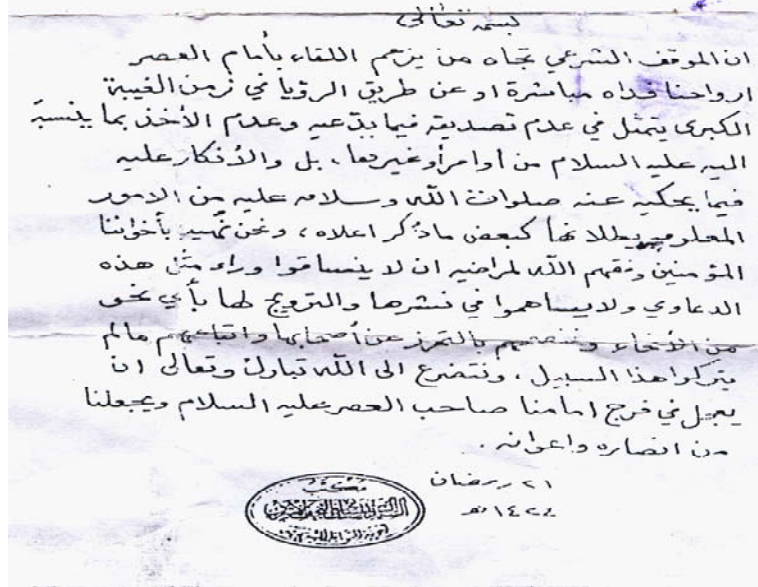 بسمه تعالى
ان الموقف الشرعي تجاه من يزعم اللقاء بأمام العصر
ارواحنا فداه مباشرة او عن طريق الرؤيا في زمن الغيبة
الكبرى يتمثل في عدم تصديقه فيما يدّعيه وعدم الأخذ بما ينسبه
اليه عليه السلام من أوامر أو غيرها، بل والأنكار عليه
فيما يحكيه عنه صلوات الله وسلامه عليه من الامور
المعلوم بطلانها كبعض ما ذكر اعلاه، ونحن نهيب بأخواننا
المؤمنين وفقهم الله لمراضيه ان لا ينساقوا وراء مثل هذه
الدعاوي ولا يساهموا في نشرها والترويج لها بأي نحو
من الأنحاء وننصحهم بالتحرز عن أصحابها واتباعهم مالم
يتركوا هذا السبيل، ونتضرع الى الله تبارك وتعالى ان
يعجل في فرج امامنا صاحب العصر عليه السلام ويجعلنا
من انصاره واعوانه.
٢١ رمضان
١٤٢٤ هـ
مكتب